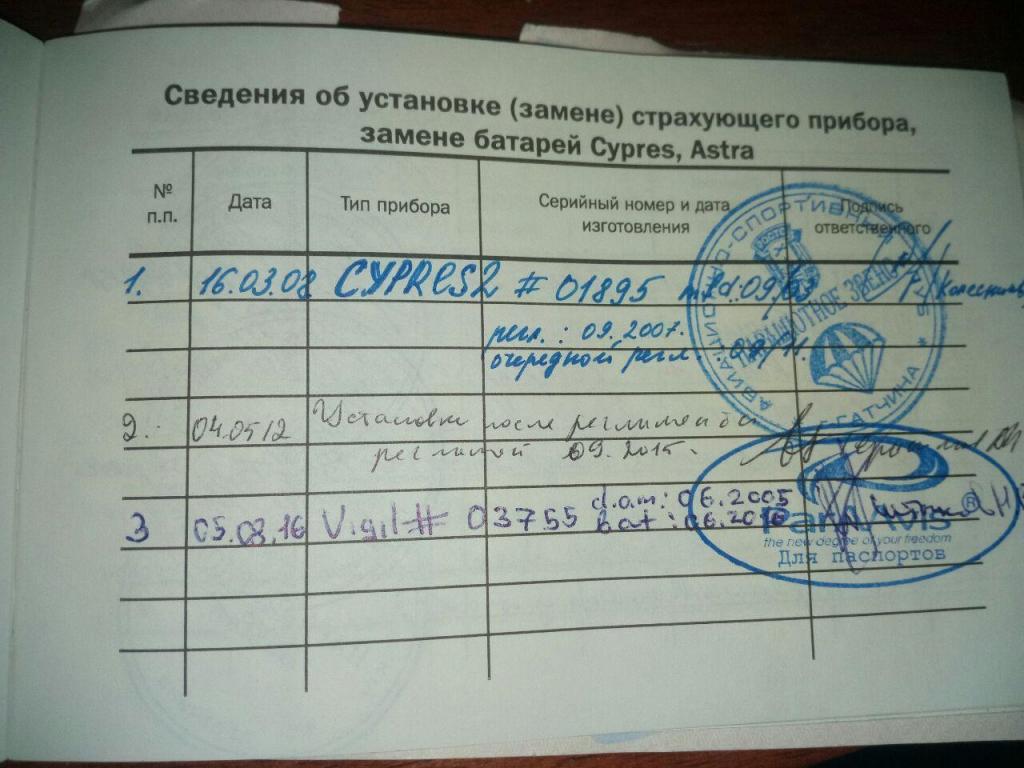 Сведения об установке (замене) страхующего прибора,
замене батарей Cypres, Astra
№ п.п. Дата Тип прибора Серийный номер и дата изготовления Подпись ответственного
1. 16.03.08 CYPRES2 # 01895
регл.: 09.2007.
очередной регл.
2. 04.0512 Установка после регламента
09.2015.
3 05.08.16 Vigil # 03755 d.o.m: 06.2005
bat : 06.2016
АВИАЦИОННО-СПОРТИВНЫЙ КЛУБ * ГАТЧИНА *
ПАРАШЮТНОЕ ЗВЕНО
ParaAvis®
the new degree of your freedom
Для паспортов